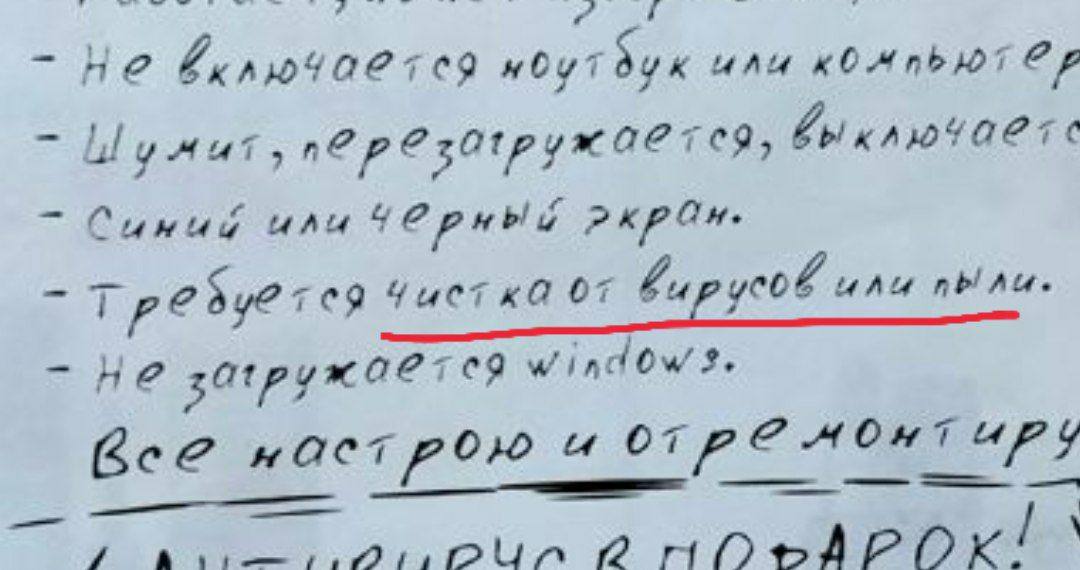 - Не включается ноутбук или компьютер
- Шумит, перезагружается, выключаетс
- Синий или черный экран.
- Требуется чистка от вирусов или пыли.
- Не загружается windows.
Все настрою и отремонтиру
Антивирус в ПОДАРОК!